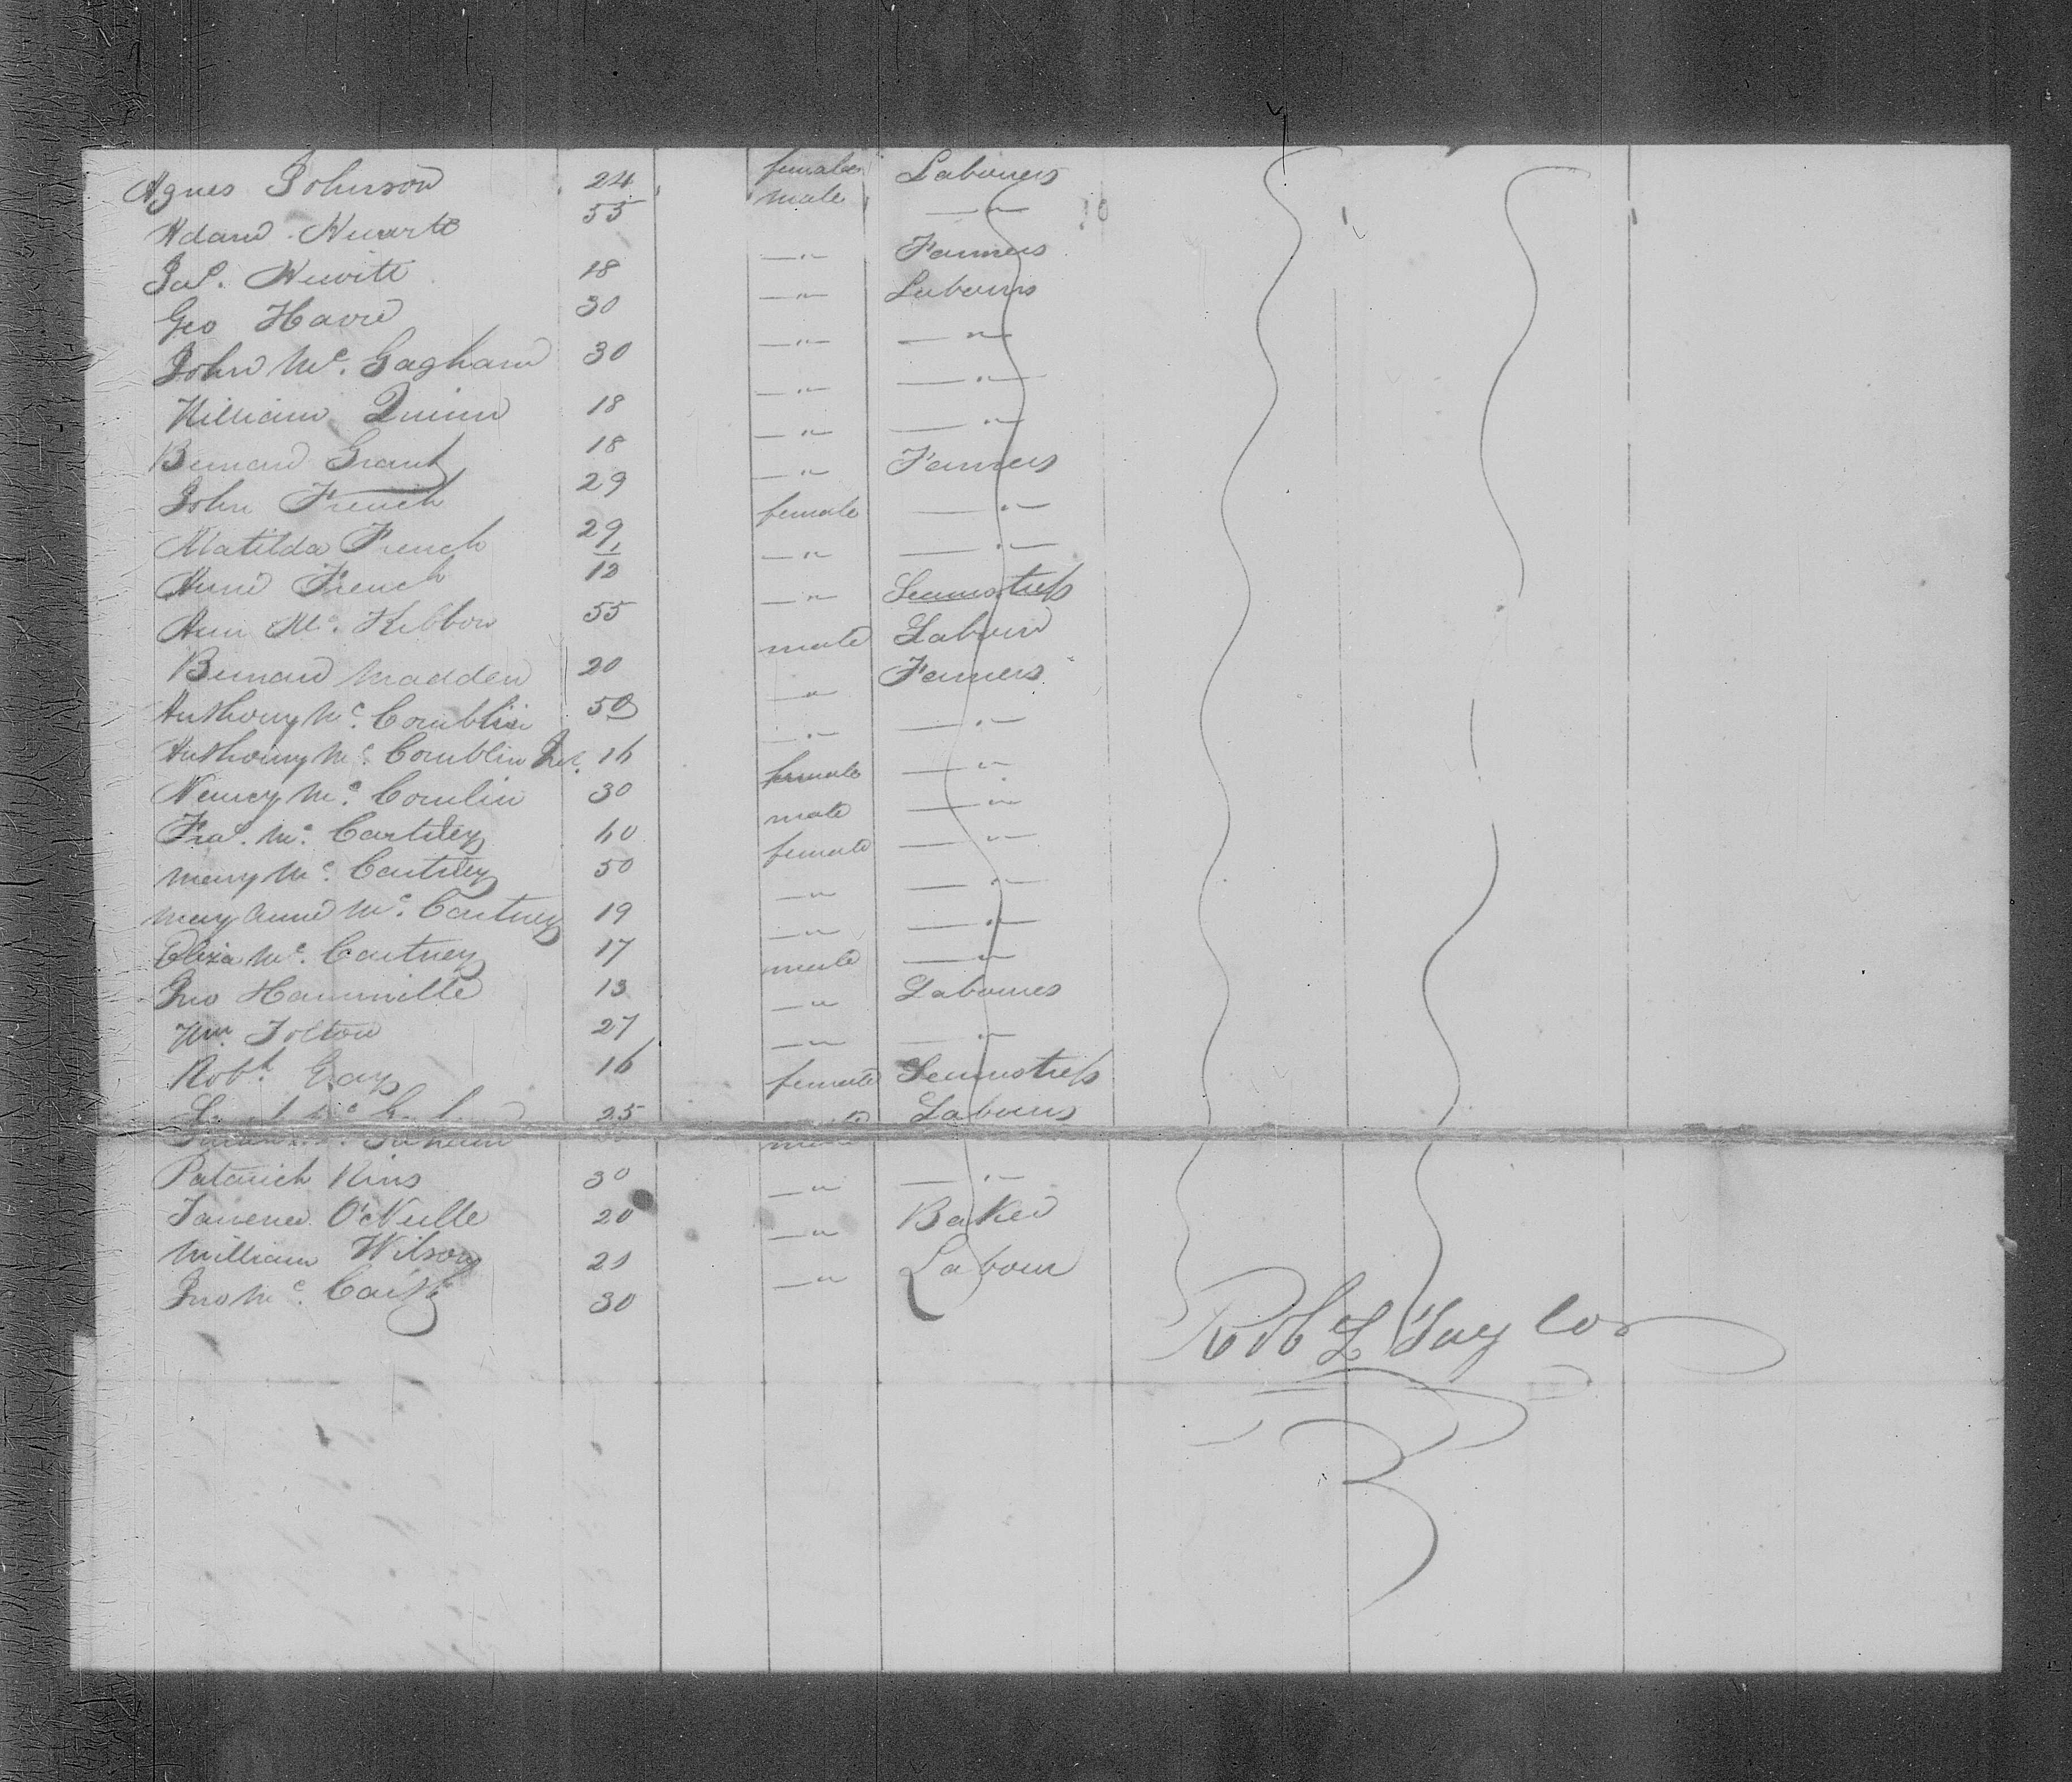 Agnes Johnson 24 female Labourers
Adam Stewart 55 male —"—
Jas. Hewitt 18 —"— Farmers
Geo Havre 30 —"— Labourers
John Mc. Gaghann 30 —"— —"—
William Quinn 18 —"— —"—
Bernard Grant 18 —"— —"—
John French 29 —"— Farmers
Matilda French 29 female —"—
Anne French 1/12 —"— —"—
Ann Mc. Kibbon 55 —"— Seamstress
Bernard Madden 20 male Labourer
Anthony Mc. Comblin 50 —"— Farmers
Anthony Mc. Comblin Jnr. 16 —"— —"—
Nancy Mc. Comlin 30 female —"—
Fras. Mc. Cartney 40 male —"—
Mary Mc. Cartney 50 female —"—
Mary Anne Mc. Cartney 19 —"— —"—
Eliza Mc. Cartney 17 —"— —"—
Jno Hammille 13 male —"—
Wm. Tolton 27 —"— Labourers
Robt. Gay 16 —"— —"—
25 female Seamstress
male Labourers
Patrick Kins 30 —"— —"—
Terrence O'Neille 20 —"— Baker
William Wilson 21 —"— Labour
Jno Mc. Carty 30
Rob L Taylor